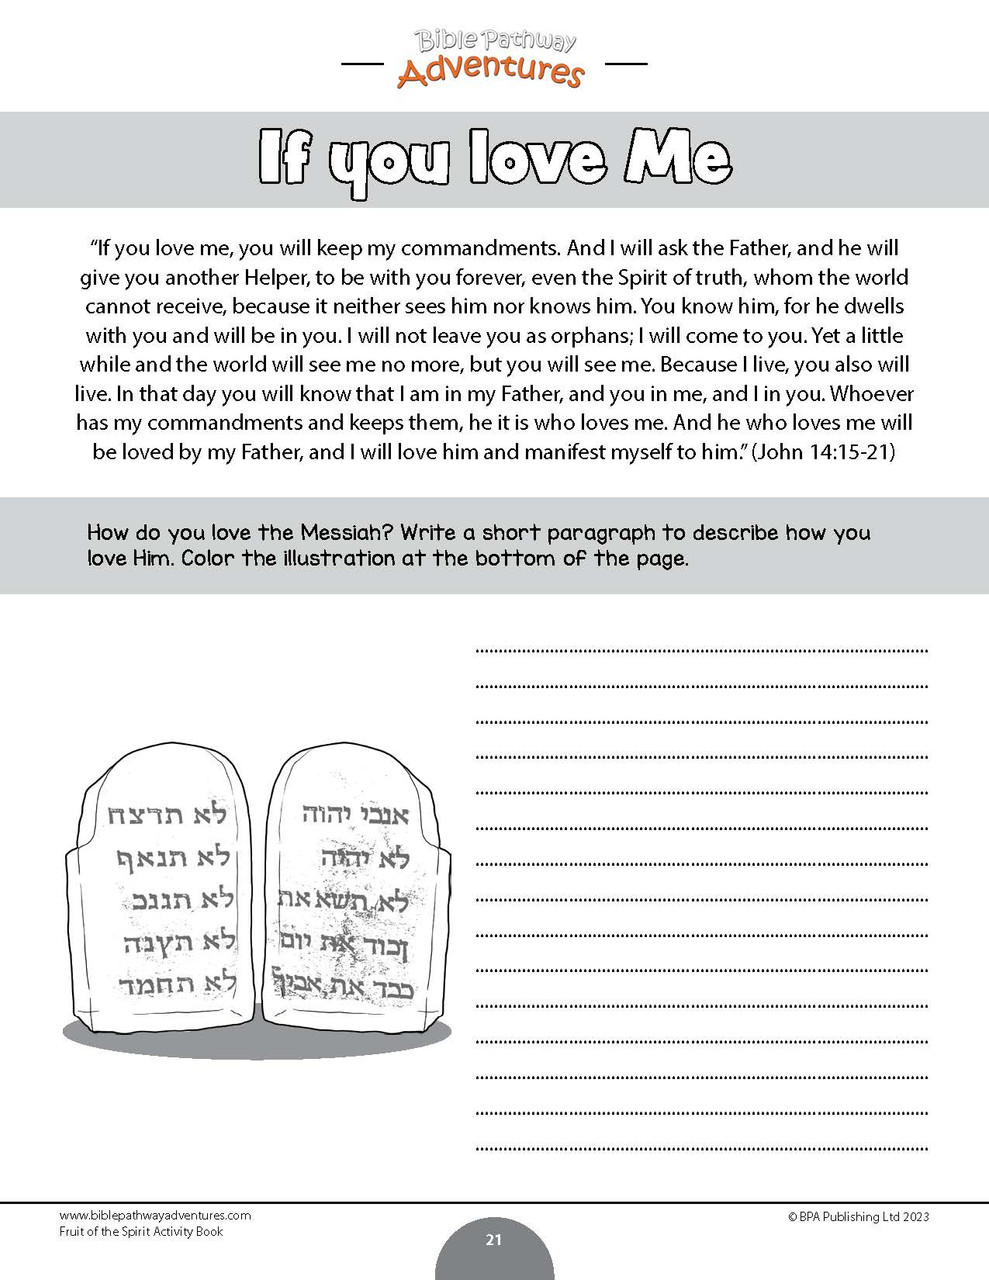 Bible Pathway
Adventures
If you love Me
“If you love me, you will keep my commandments. And I will ask the Father, and he will
give you another Helper, to be with you forever, even the Spirit of truth, whom the world
cannot receive, because it neither sees him nor knows him. You know him, for he dwells
with you and will be in you. I will not leave you as orphans; I will come to you. Yet a little
while and the world will see me no more, but you will see me. Because I live, you also will
live. In that day you will know that I am in my Father, and you in me, and I in you. Whoever
has my commandments and keeps them, he it is who loves me. And he who loves me will
be loved by my Father, and I will love him and manifest myself to him.” (John 14:15-21)
How do you love the Messiah? Write a short paragraph to describe how you
love Him. Color the illustration at the bottom of the page.
אנכי יהוה
לא יהוה
לא תשא את
זכור את יום
כבד את אביך
לא תרצח
לא תנאף
לא
לא
לא תחמד
www.biblepathwayadventures.com
Fruit of the Spirit Activity Book
21
© BPA Publishing Ltd 2023